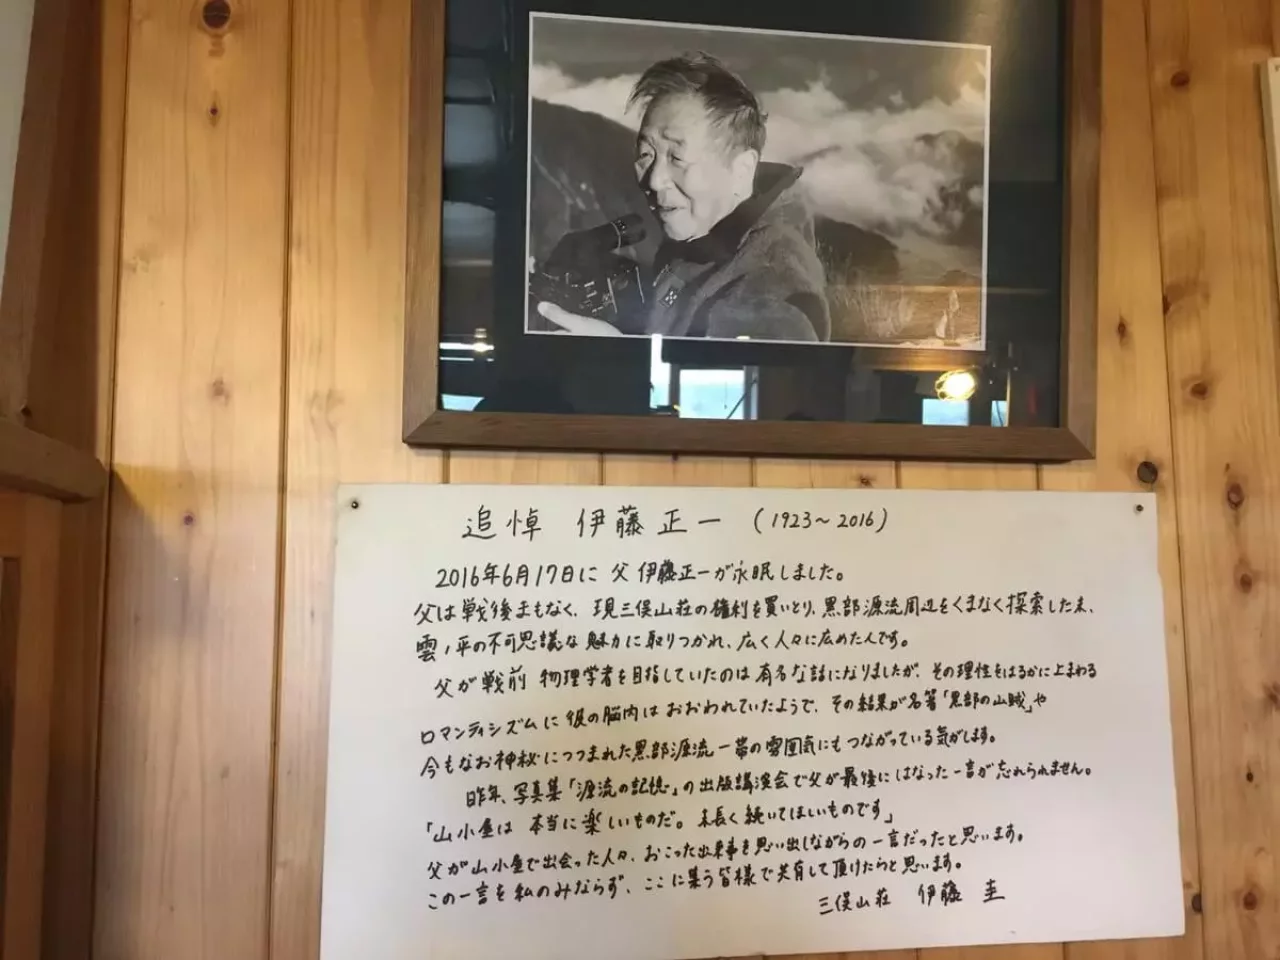 追悼 伊藤正一 (1923〜2016)
2016年6月17日に 父 伊藤正一が永眠しました。
父は戦後まもなく、現三俣山荘の権利を買いとり、黒部源流周辺をくまなく探索した末、
雲ノ平の不可思議な魅力に取りつかれ、広く人々に広めた人です。
父が戦前 物理学者を目指していたのは有名な話になりましたが、その理性をはるかに上まわる
ロマンティシズムに彼の脳内はおおわれていたようで、その結果が名著「黒部の山賊」や
今もなお神秘につつまれた黒部源流一帯の雰囲気にもつながっている気がします。
昨年、写真集「源流の記憶」の出版講演会で父が最後にはなった一言が忘れられません。
「山小屋は 本当に楽しいものだ。末長く続いてほしいものです」
父が山小屋で出会った人々、おこった出来事を思い出しながらの一言だったと思います。
この一言を私のみならず、ここに集う皆様で共有して頂けたらと思います。
三俣山荘 伊藤 圭